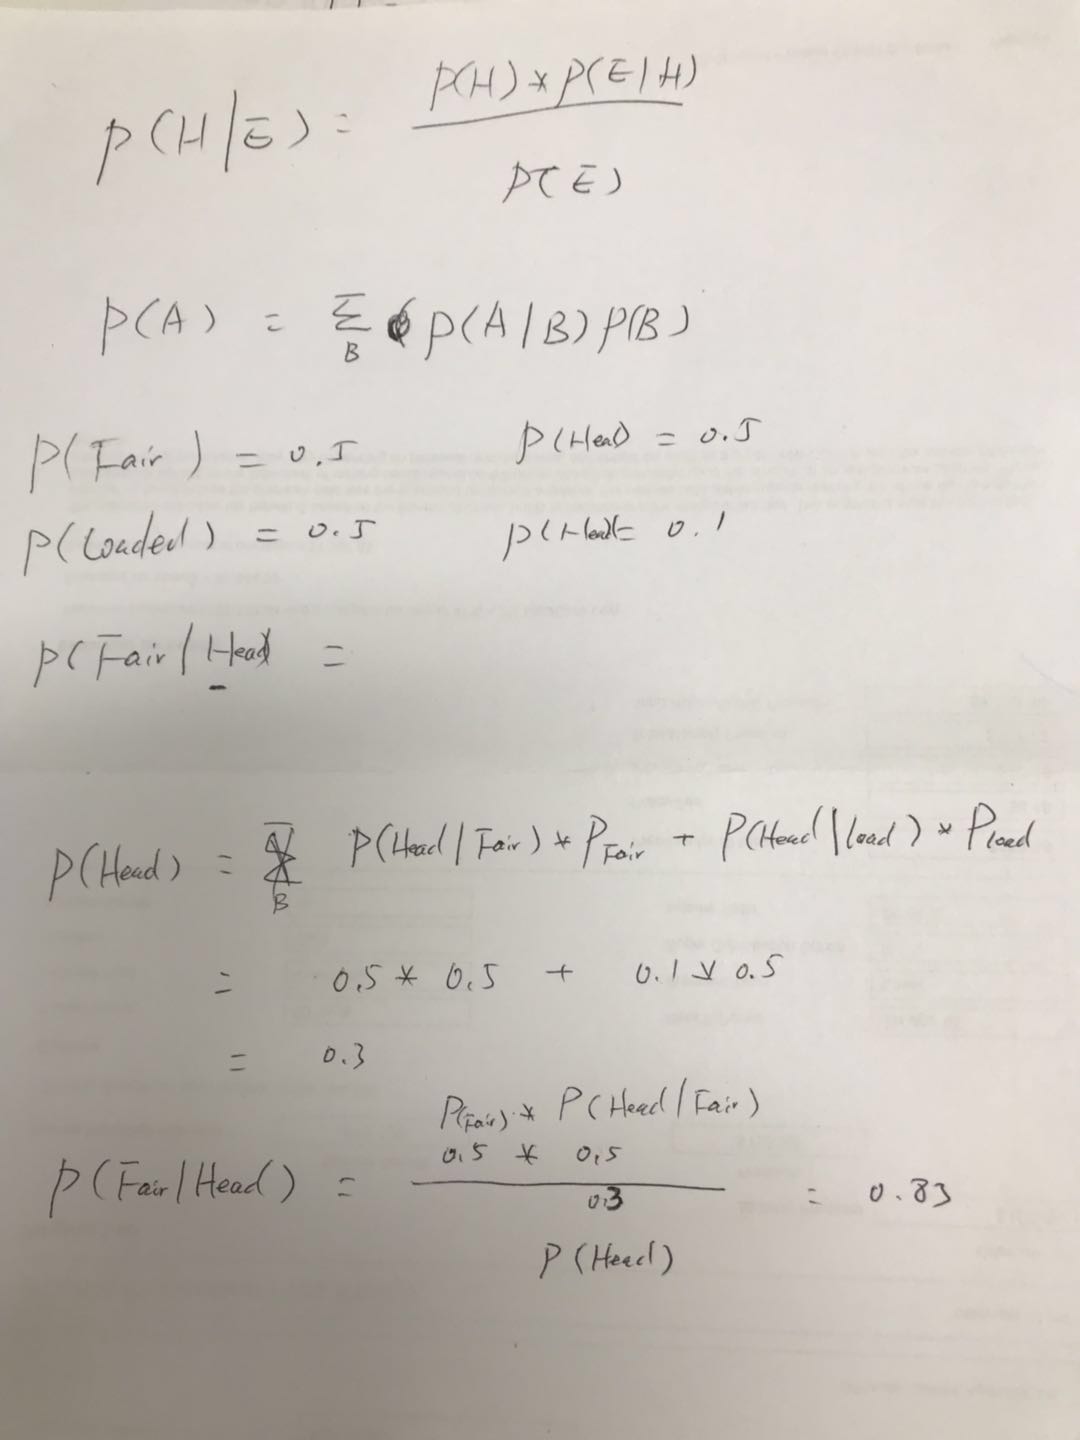 P(H/E) = P(H) * P(E/H)
P(E)
P(A) = Σ P(A/B) P(B)
B
P(Fair) = 0.5 P(Head) = 0.5
P(Loaded) = 0.5 P(Head)= 0.1
P(Fair/Head =
P(Head) = P(Head/Fair) * P Fair + P(Head/load) * P load
B
= 0.5 * 0.5 + 0.1 * 0.5
= 0.3
P(Fair) * P(Head/Fair)
0.5 * 0.5
P(Fair/Head) = = 0.83
0.3
P(Head)